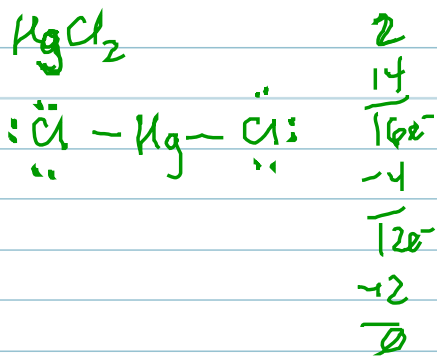 HgCl₂
:Cl — Hg — Cl:
2
14
16e⁻
-4
12e⁻
-12
0